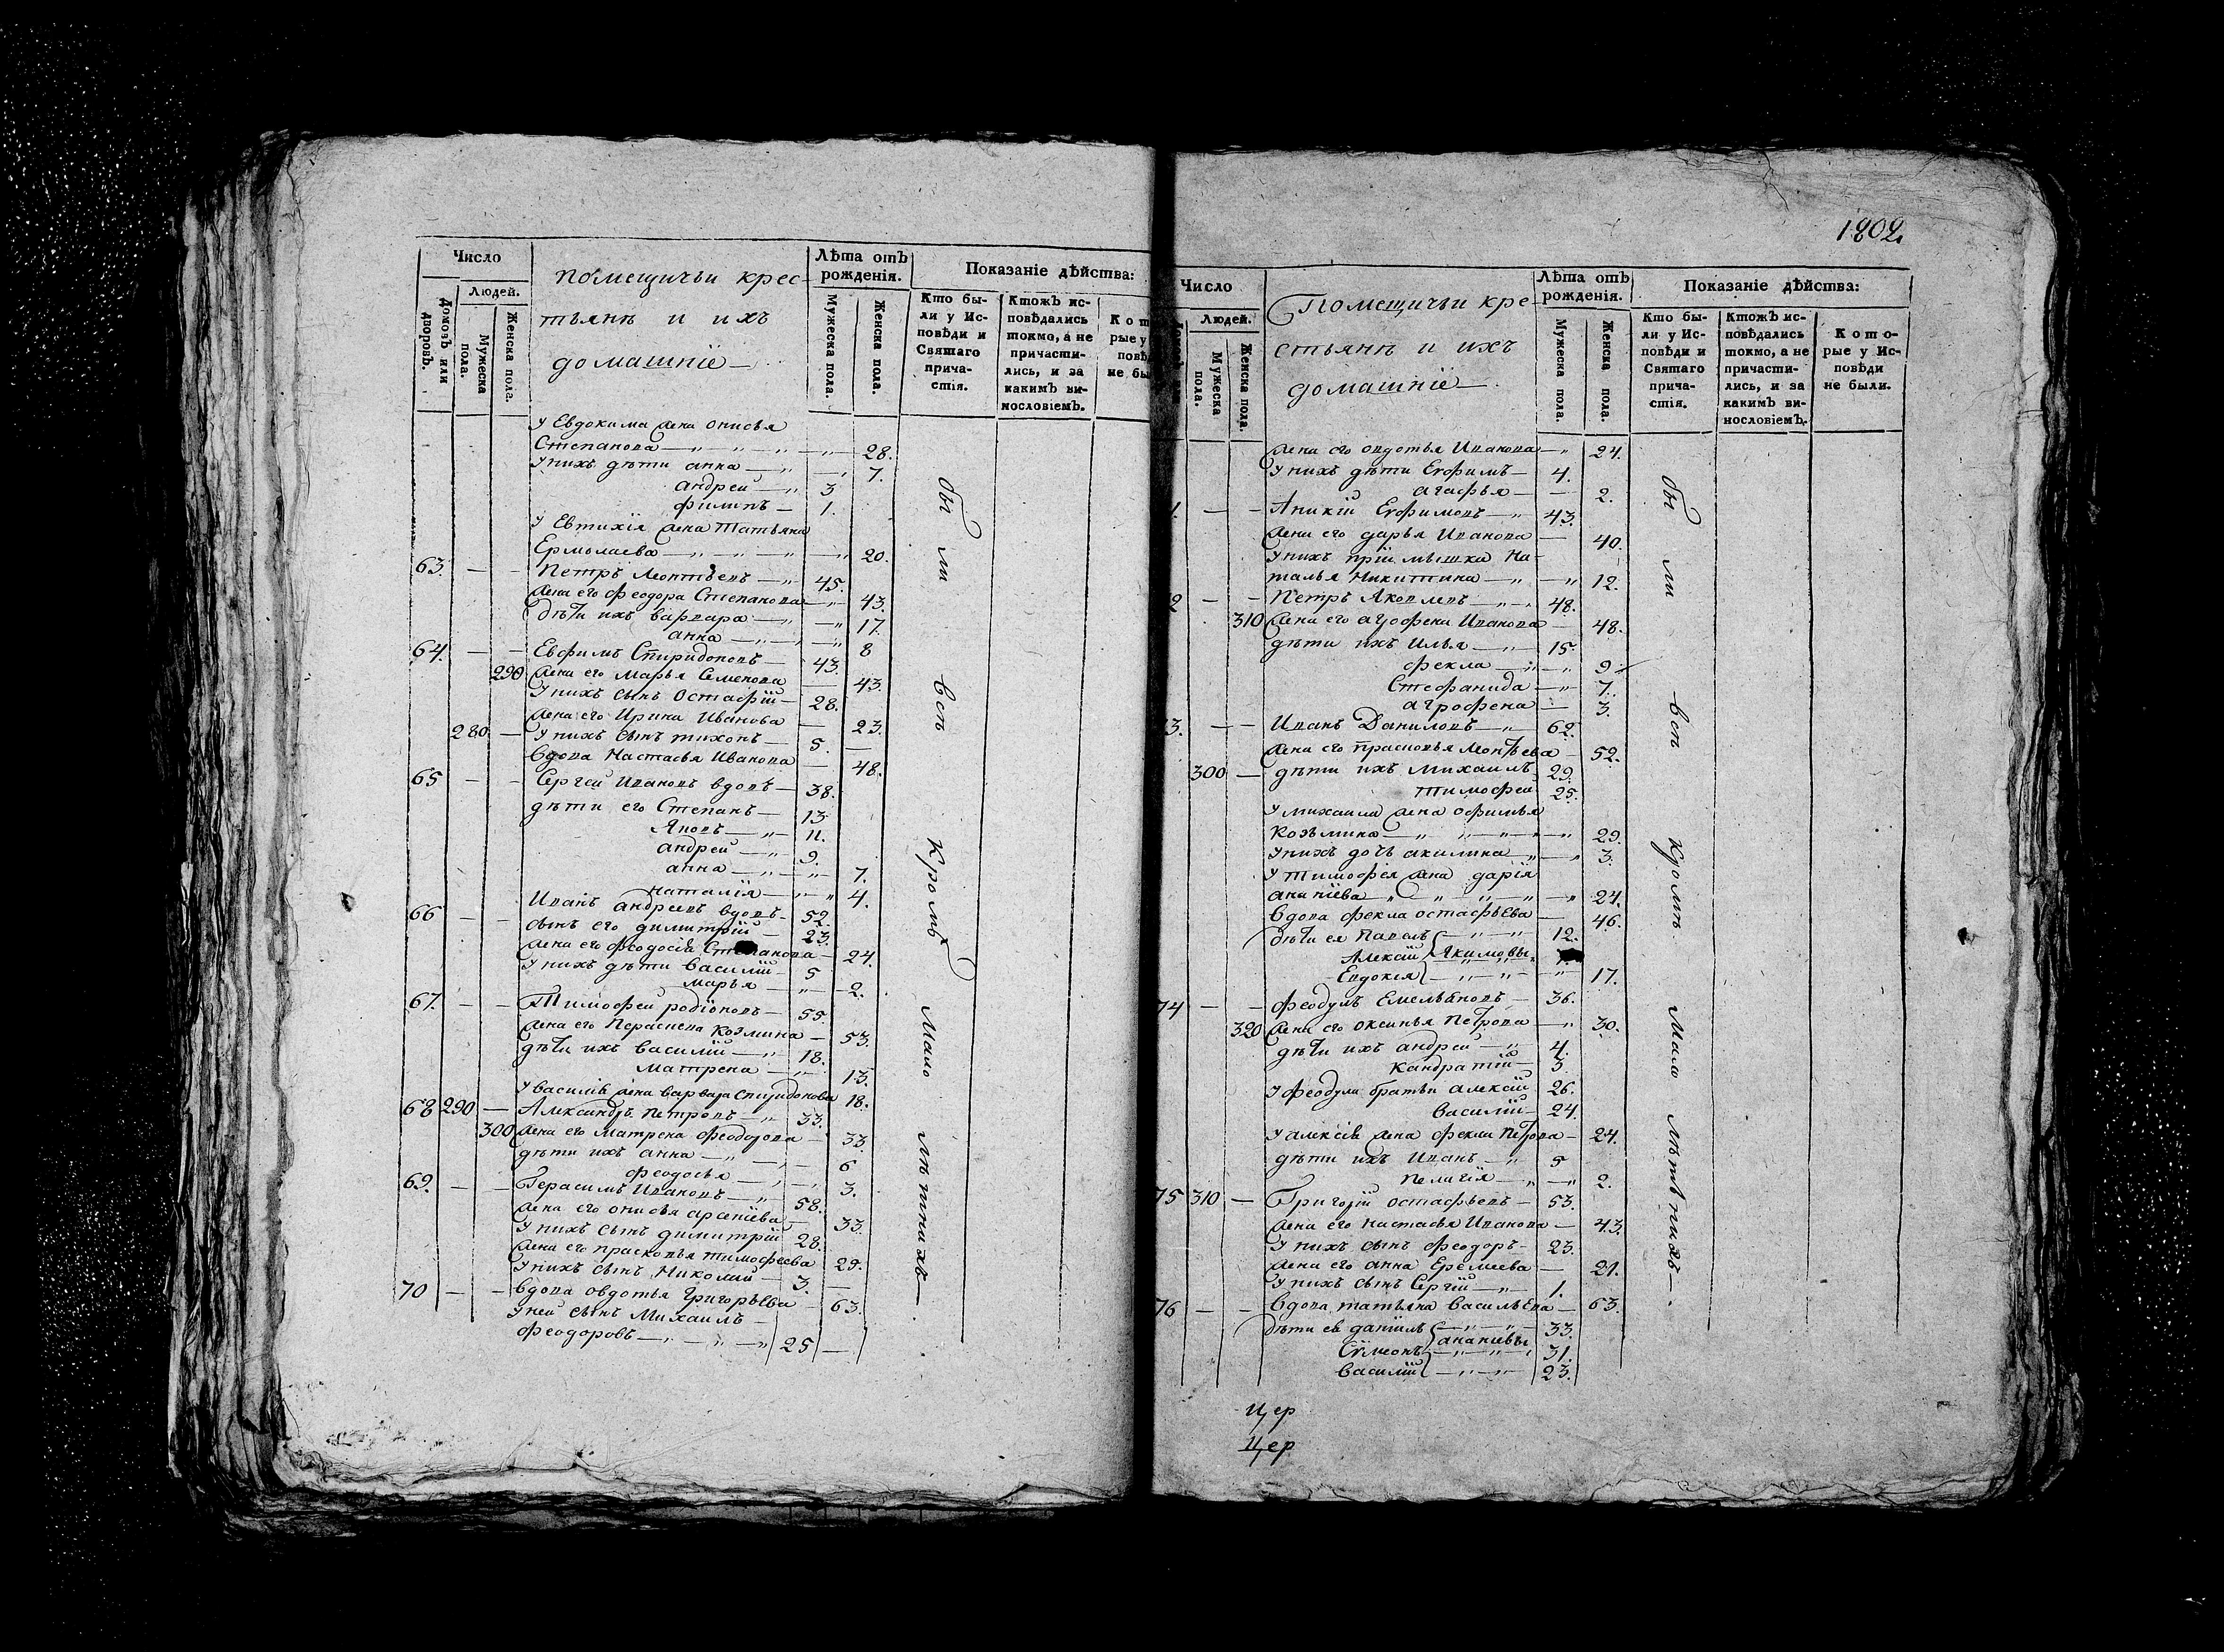 Число
Людей.
Домовъ или дворовъ.
Мужеска пола.
Женска пола.
помещичьи крес-
тьянѣ и ихъ
домашнїе
Лѣта отъ рожденія.
Мужеска пола.
Женска пола.
Показаніе дѣйства:
Кто бы-
ли у Ис-
повѣди и
Святаго
прича-
стія.
Ктожъ ис-
повѣдались
токмо, а не
причасти-
лись, и за
какимъ ви-
нословіемъ.
У Евдокима жена Онисья
Степанова 28.
У нихъ дѣти анна 7.
андрей 3
филипъ 1.
У Евтихія жена Татьяна
Ермолаева 20.
63. Петръ Леонтьевъ 45.
жена его феодора Степанова 43.
дѣти ихъ варвара 17.
анна 8
64. Евфимъ Спиридоновъ 43.
290 жена его Марья Семенова 43.
У нихъ сынъ Остафій 28.
жена его Ирина Иванова 23.
280 У нихъ сынъ тихонъ 5.
вдова Настасья Иванова 48.
65 Сергей Ивановъ вдовъ 38.
дѣти его Степанъ 13
Яковъ 11.
андрей 9.
анна 7.
наталія 4.
66 Иванъ андреевъ вдовъ 52.
сынъ его димитрій 23.
жена его Феодосія Степанова 24.
У нихъ дѣти василій 5
марья 2.
67. Тимофей родіоновъ 55.
жена его Параскева Козмина 53.
дѣти ихъ василій 18.
матрена 13.
У василія жена варвара спиридонова 18.
68 290 Александръ петровъ 33.
300 жена его матрена феодорова 33.
дѣти ихъ анна 6
феодосья 3.
69. Герасимъ Ивановъ 58.
жена его онисья арсеніева 33.
У нихъ сынъ димитрій 28.
жена его прасковья тимофеева 29.
У нихъ сынъ Николай 3.
70 вдова овдотья григорьева 63.
У ней сынъ Михаилъ
феодоровъ 25
бы ли всѣ кромѣ мало лѣтнихъ
1802
Число
Людей.
Мужеска пола.
Женска пола.
Помещичьи кре-
стьянѣ и ихъ
домашніе
Лѣта отъ рожденія.
Мужеска пола.
Женска пола.
Показаніе дѣйства:
Кто бы-
ли у Ис-
повѣди и
Святаго
прича-
стія.
Ктожъ ис-
повѣдались
токмо, а не
причасти-
лись, и за
какимъ ви-
нословіемъ.
Кото-
рые у Ис-
повѣди
не были.
жена его овдотья Иванова 24.
У нихъ дѣти Ефимъ 4.
агафья 2.
1. Аникій Ефимовъ 43.
жена его дарья Иванова 40.
У нихъ приімышка На-
талья Никитина 12.
2 Петръ Яковлевъ 48.
310 жена его агрофена Иванова 48.
дѣти ихъ Илья 15.
фекла 9
Стефанида 7.
агрофена 3.
3. Иванъ Даниловъ 62.
жена его прасковья Леонтьева 52.
300 дѣти ихъ Михаилъ 29.
тимофей 25.
У михаила жена офимья
Козьмина 29.
У нихъ дочь акилина 3.
У тимофея жена дарія
ананіева 24.
вдова фекла остафьева 46.
дѣти ея Павелъ 12.
Алексій Якимовы
Евдокея 17.
74 феодулъ Емельяновъ 36.
320 жена его оксинья Петрова 30.
дѣти ихъ андрей 4.
Кандратій 3
У феодула братьи алексій 26.
василій 24.
У алексія жена фекла петрова 24.
дѣти ихъ Иванъ 5
пелагія 2.
75 310 Григорій остафьевъ 53.
жена его настасья Иванова 43.
У нихъ сынъ феодоръ 23.
жена его анна Еремеева 21.
У нихъ сынъ Сергій 1.
76 вдова татьяна васильева 63.
дѣти ея даніилъ 33.
Сѵмеонъ ананіевы 31.
василій 23.
бы ли всѣ кромѣ мало лѣтнихъ
Цер
Цер